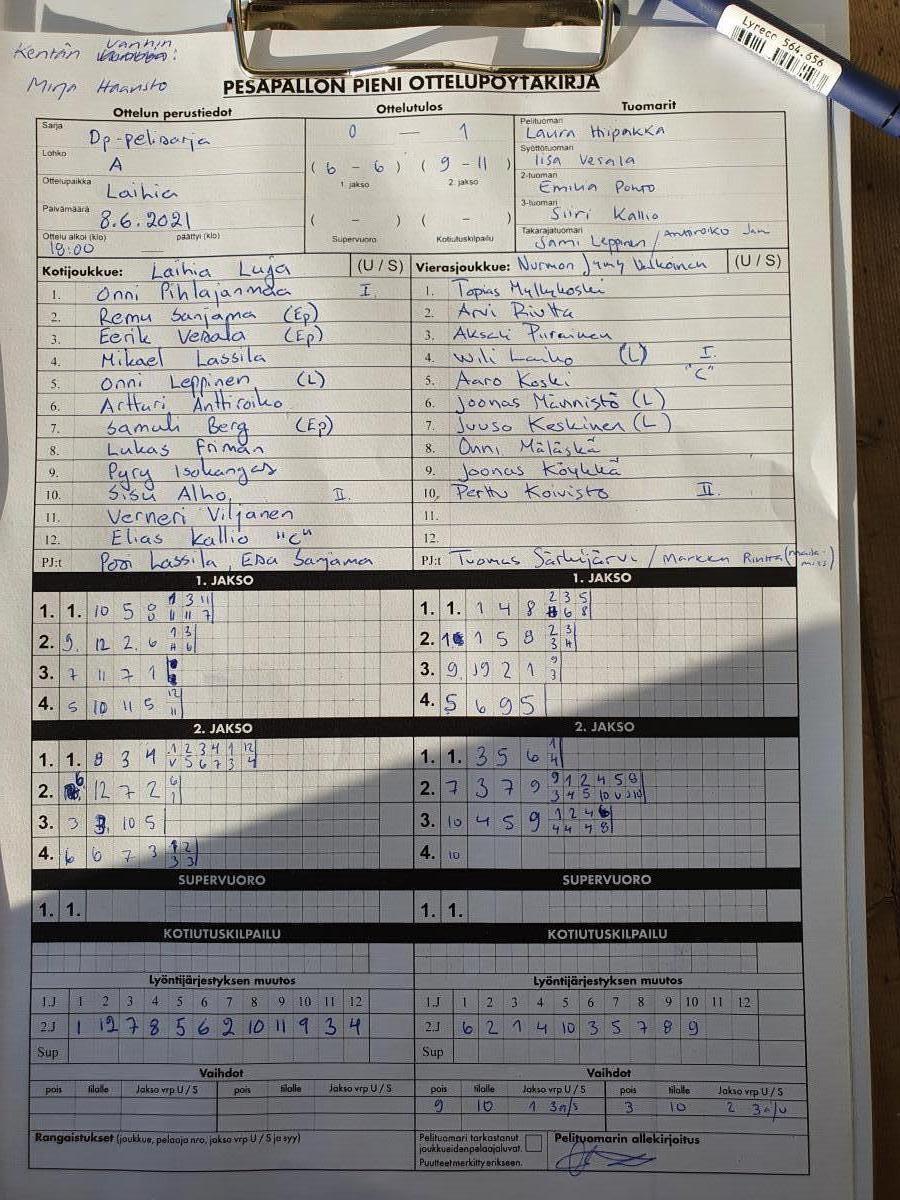 Kentän vanhin
Mirja Haansto
Lyreco 564.656
PESÄPALLON PIENI OTTELUPÖYTÄKIRJA
Ottelun perustiedot
Ottelutulos
Tuomarit
Sarja
Dp-pelisarja
Lohko
A
Ottelupaikka
Laihia
Päivämäärä
8.6.2021
Ottelu alkoi (klo) päättyi (klo)
18:00
0 — 1
( 6 - 6 ) ( 9 - 11 )
1. jakso 2. jakso
( - ) ( - )
Supervuoro Kotiutuskilpailu
Pelituomari
Laura Hiipakka
Syöttötuomari
Iisa Vesala
2-tuomari
Emilia Ponto
3-tuomari
Siiri Kallio
Takarajatuomari
Sami Leppinen / Anttiroiko
Kotijoukkue: Laihia Luja (U / S)
1. Onni Pihlajanmaa I.
2. Remu Sanjama (Ep)
3. Eerik Vesala (Ep)
4. Mikael Lassila
5. Onni Leppinen (L)
6. Artturi Anttiroiko
7. Samuli Berg (Ep)
8. Lukas Friman
9. Pyry Isokangas
10. Sisu Alho II.
11. Verneri Viljanen
12. Elias Kallio "C"
PJ:t Lassila, Esa Sanjama
Vierasjoukkue: Nurmon Jymy (U / S)
1. Topias Myllykoski
2. Arvi Rintta
3. Akseli Piirainen
4. Wili Laiho (L) I.
5. Aaro Koski "C"
6. Joonas Männistö (L)
7. Juuso Keskinen (L)
8. Onni Mäläskä
9. Joonas Köykkä
10. Perttu Koivisto II.
11.
12.
PJ:t Tuomas Särkijärvi / Markku Rintta
1. JAKSO
1. 1. 10 5 8
2. 9. 12 2 6
3. 7 11 7 1
4. 5 10 11 5
1. JAKSO
1. 1. 1 4 8
2. 1 5 8
3. 9 2 1
4. 5 6 9 5
2. JAKSO
1. 1. 8 3 4
2. 6 12 7 2
3. 3 10 5
4. 6 6 7 3
2. JAKSO
1. 1. 3 5 6
2. 7 3 7 9
3. 10 4 5 9
4. 10
SUPERVUORO
1. 1.
SUPERVUORO
1. 1.
KOTIUTUSKILPAILU
KOTIUTUSKILPAILU
Lyöntijärjestyksen muutos
1.J 1 2 3 4 5 6 7 8 9 10 11 12
2.J 1 12 7 8 5 6 2 10 11 9 3 4
Sup
Lyöntijärjestyksen muutos
1.J 1 2 3 4 5 6 7 8 9 10 11 12
2.J 6 2 1 4 10 3 5 7 8 9
Sup
Vaihdot
pois tilalle Jakso vrp U / S pois tilalle Jakso vrp U / S
Vaihdot
pois tilalle Jakso vrp U / S pois tilalle Jakso vrp U / S
9 10 1 3a/s 3 10 2 3a/u
Rangaistukset (joukkue, pelaaja nro, jakso vrp U / S ja syy)
Pelituomari tarkastanut
joukkueidenpelaajaluvat.
Puutteet merkitty erikseen.
Pelituomarin allekirjoitus